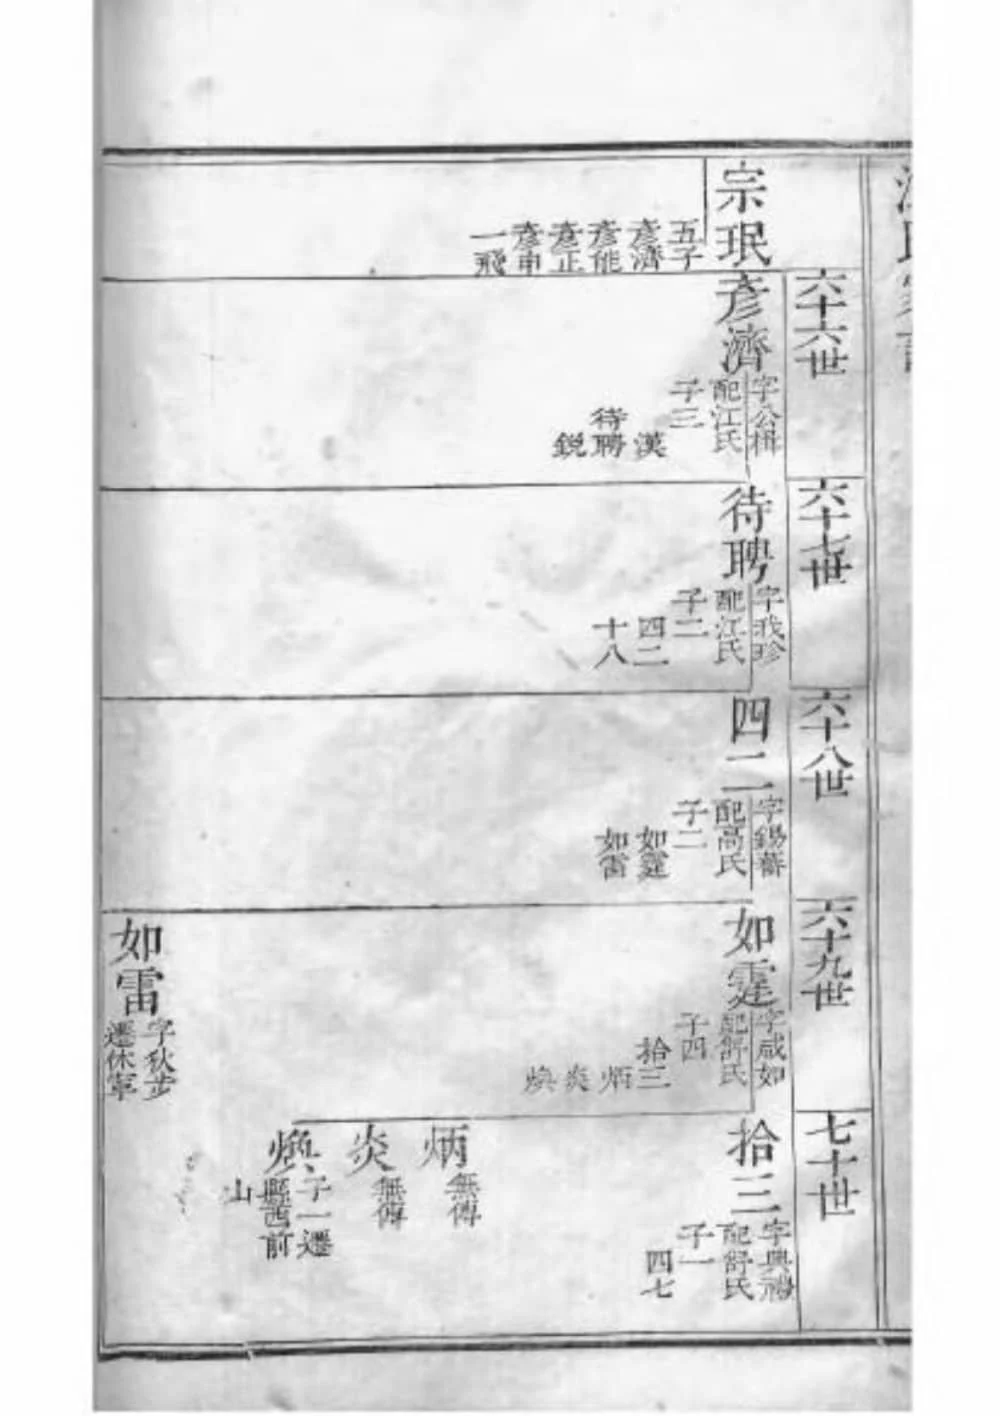 宗珉
五子
彥濟
彥能
彥正
彥申
一飛
六十六世
彥濟
字公楫
配江氏
子三
漢
待聘
銳
六十七世
待聘
字我珍
配江氏
子二
四二
十八
六十八世
四二
字錫蕃
配高氏
子二
如霆
如雷
六十九世
如霆
字咸如
配舒氏
子四
拾三
炳
炎
煥
如雷
字秋步
遷休寧
七十世
拾三
字興
配舒氏
子一
四七
炳
無傳
炎
無傳
煥
子一遷
縣西前
山